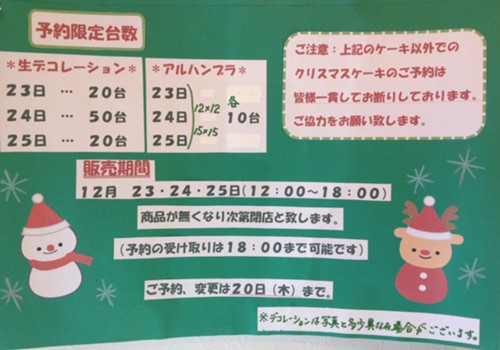 予約限定台数
＊生デコレーション＊
23日 … 20台
24日 … 50台
25日 … 20台
＊アルハンブラ＊
23日
24日
25日
12×12
15×15
各
10台
ご注意：上記のケーキ以外での
クリスマスケーキのご予約は
皆様一貫してお断りしております。
ご協力をお願い致します。
販売期間
12月 23・24・25日(12：00～18：00)
商品が無くなり次第閉店と致します。
(予約の受け取りは18：00まで可能です)
ご予約、変更は20日（木）まで。
※デコレーションは写真と多少異なる場合がございます。